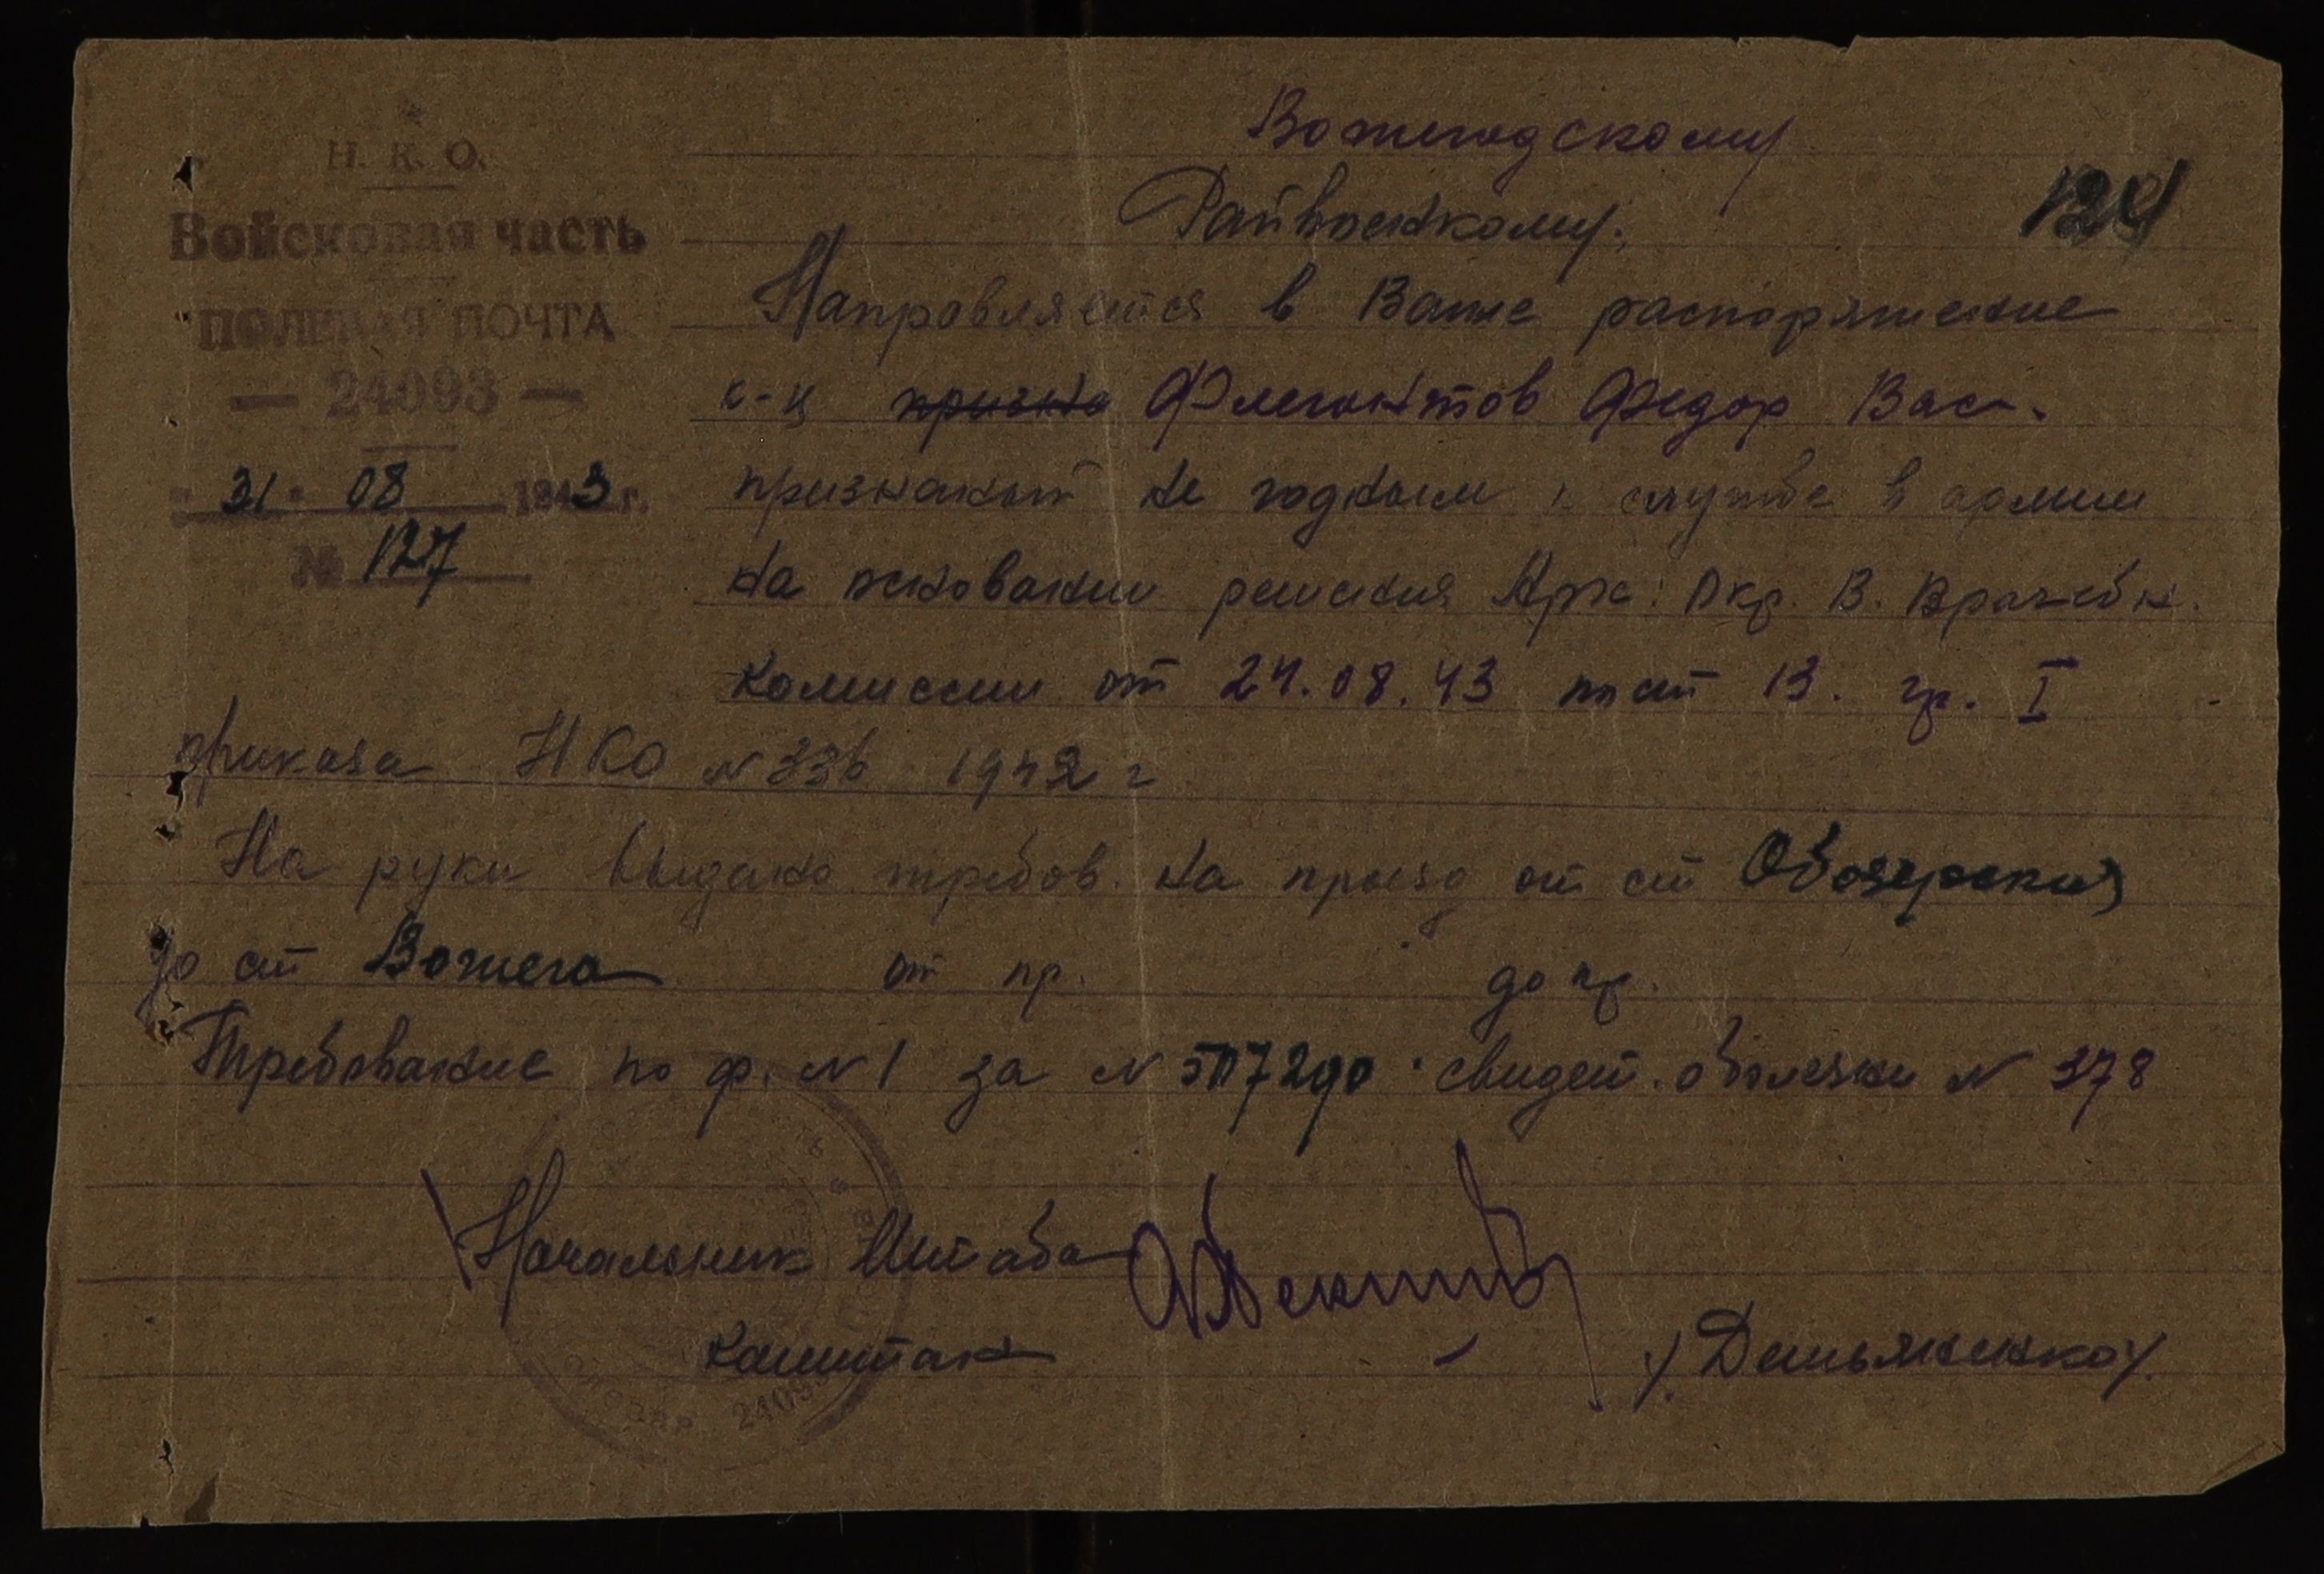 Н. К. О.
Войсковая часть
ПОЛЕВАЯ ПОЧТА
— 24093 —
"31" 08 1943 г.
№ 127
Вожегодскому
Райвоенкому.
124
Направляется в Ваше распоряжение
к-ц Флегонтов Федор Вас.
признаный не годным к службе в армии
на основании решения Арх. Окр. В. Врачебн.
комиссии от 24.08.43 по ст 13. гр. I
приказа НКО № 336 1942 г
На руки выдано требов. на проезд от ст Обозерская
до ст Вожега от пр. до пр.
Требование по ф. № 1 за № 507290 свидет. о болезни № 378
Начальник Штаба
Капитан /Демьяненко/.